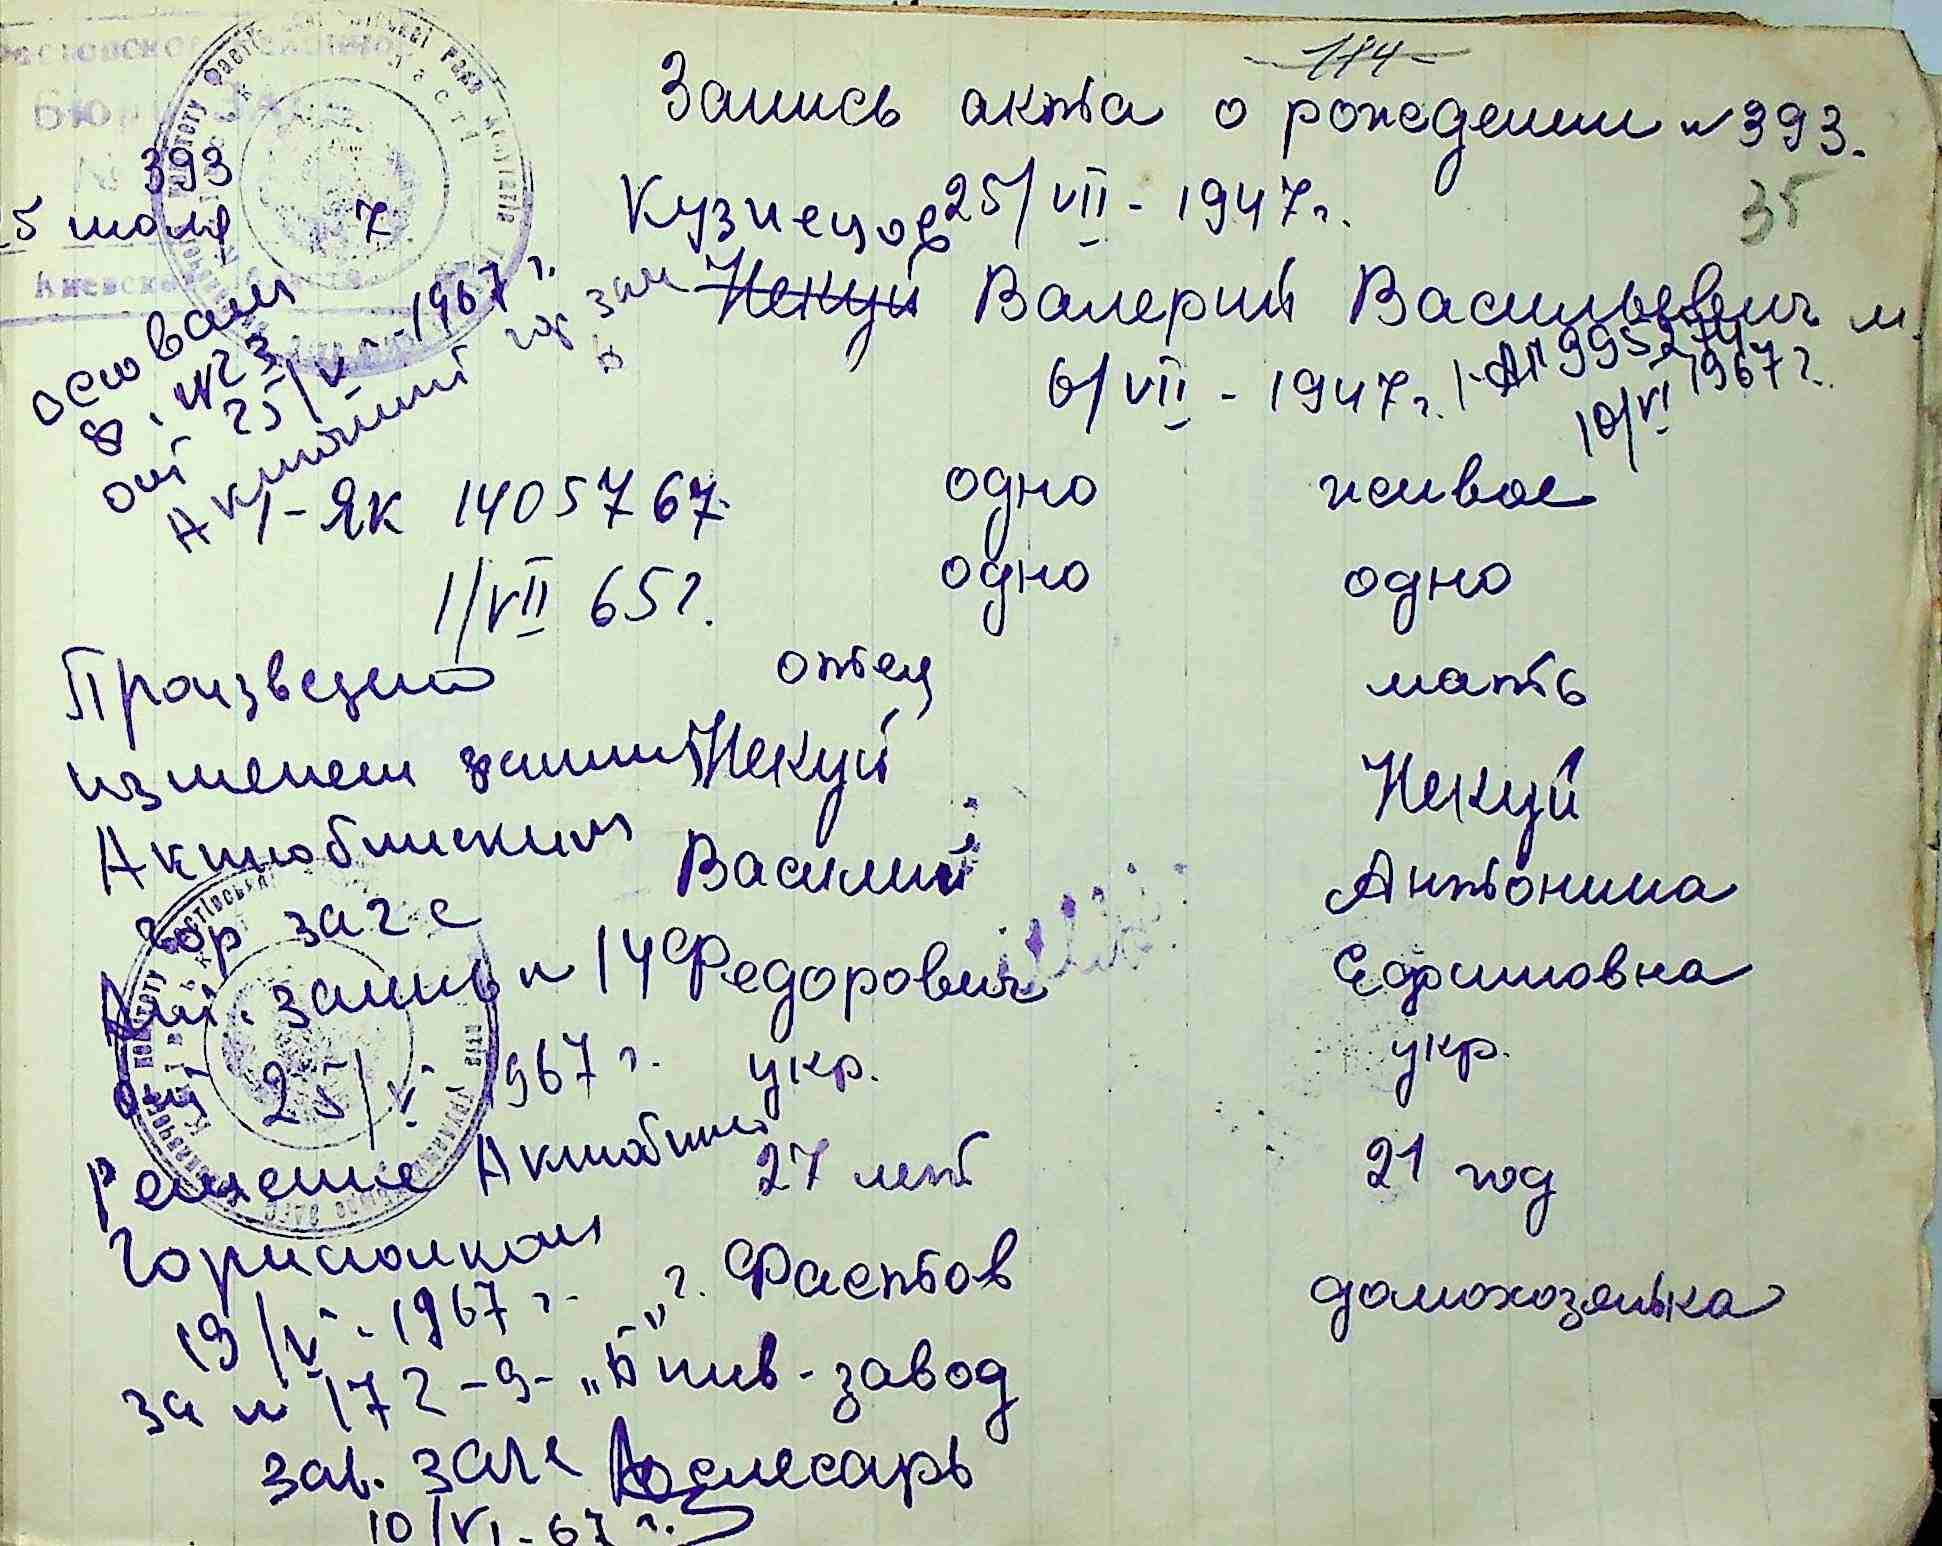 -184-
Запись акта о рождении № 393.
35
Бюро ЗАГС
№ 393
25 июля 7
Киевской области
Кузнецов 25/VII - 1947 г.
Некуй Валерий Васильевич м.
6/VII - 1947 г. I-АП 995274
10/VI 1967 г.
Основан
в. №23
от 25/V - 1967 г.
Актюбинский гор заг
I-ЯК 1405767.
1/VII 65 г.
одно живое
одно одно
Произведено
изменен записи
Актюбинским
гор загс
Акт. запись № 14
от 25/V 1967 г.
Решение Актюбинс
Горисполком
19/V - 1967 г.
за № 172-9-
зав. загс
10/VI - 67 г.
отец мать
Некуй Некуй
Василий Антонина
Федорович Ефимовна
укр. укр.
27 лет 21 год
г. Фастов домохозяйка
пив-завод
слесарь